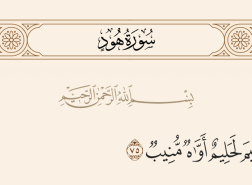 سُورَةُ هُودٍ
بِسْمِ اللَّهِ الرَّحْمَٰنِ الرَّحِيمِ
لَحَلِيمٌ أَوَّاهٌ مُّنِيبٌ ٧٥